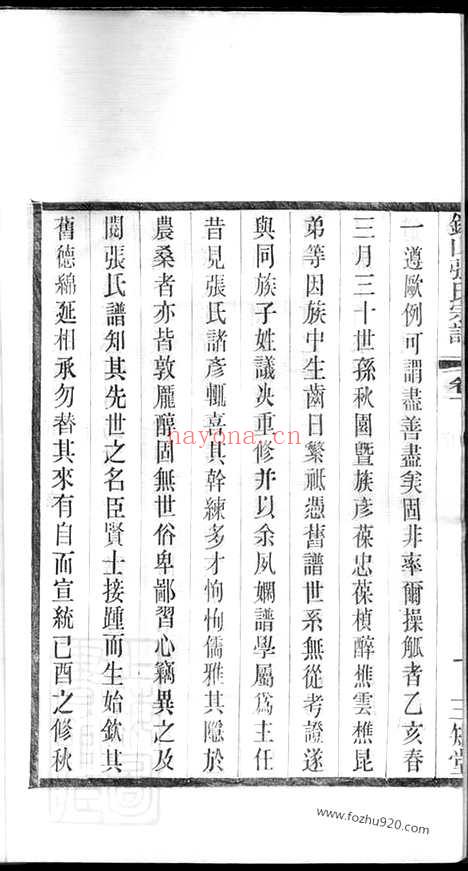 張氏宗譜
卷一
一遵歐例可謂盡善盡矣固非率爾操觚者乙亥春
三月三十世孫秋園暨族彥葆忠葆楨醉樵雲樵昆
弟等因族中生齒日繁祇憑舊譜世系無從考證遂
與同族子姓議決重修并以余夙嫻譜學屬爲主任
昔見張氏諸彥輒嘉其幹練多才恂恂儒雅其隱於
農桑者亦皆敦龐醇固無世俗卑鄙習心竊異之及
閱張氏譜知其先世之名臣賢士接踵而生始欽其
舊德綿延相承勿替其來有自而宣統己酉之修秋
nayona.cn
www.fozhu920.com